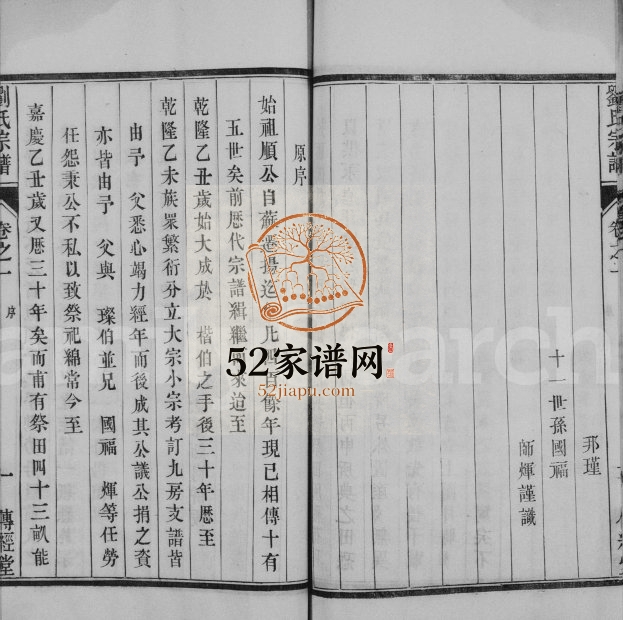 劉氏宗譜
邦瑾
十一世孫國福
師煇謹識
原序
始祖順公自蘇遷揚迄今 餘年現已相傳十有
五世矣前歷代宗譜緝繼 來迨至
乾隆乙丑歲始大成於 楷伯之手後三十年歷至
乾隆乙未族眾繁衍分立大宗小宗考訂九房支譜皆
由予 父悉心竭力經年而後成其公議公捐之資
亦皆由予 父與 璨伯並兄 國福 煇等任勞
任怨秉公不私以致祭祀綿常今至
嘉慶乙丑歲又歷三十年矣而甫有祭田四十三畝能
劉氏宗譜
卷之一
序
一
傳經堂
52家谱网
52jiapn.com